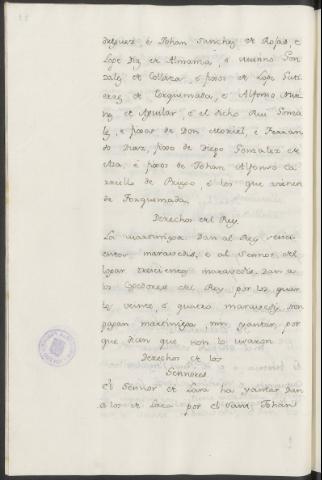 driguez, é Johan Sanchez de Rojas, é
Lope Diz de Almansa, é Nunno Gon
zalez de Collaza, é fijos de Lope Guti
errez de Torquemada, é Alfonso Nuñez
de Aguilar, é el dicho Rui Gonza
lez, é fijos de Don Moriel, é Ferran
do Diaz, fijos de Diego Gonzalez de
Aza, é fijos de Johan Alfonso Ca
rriello de Priego, é los que vienen
de Torquemada.
Derechos del Rey
La martiniega dan al Rey seis
cientos maravedis, é al Sennor del
logar trescientos maravedis. Dan a
los Cogedores del Rey por los
lo veinte, é quatro maravedis. Non
pagan martiniega, nin yantar, por
que dicen que non lo usaron.
Derechos de los
Sennores
El Sennor de Lara ha yantar. Dan
a los de Lara por el Sant Johan